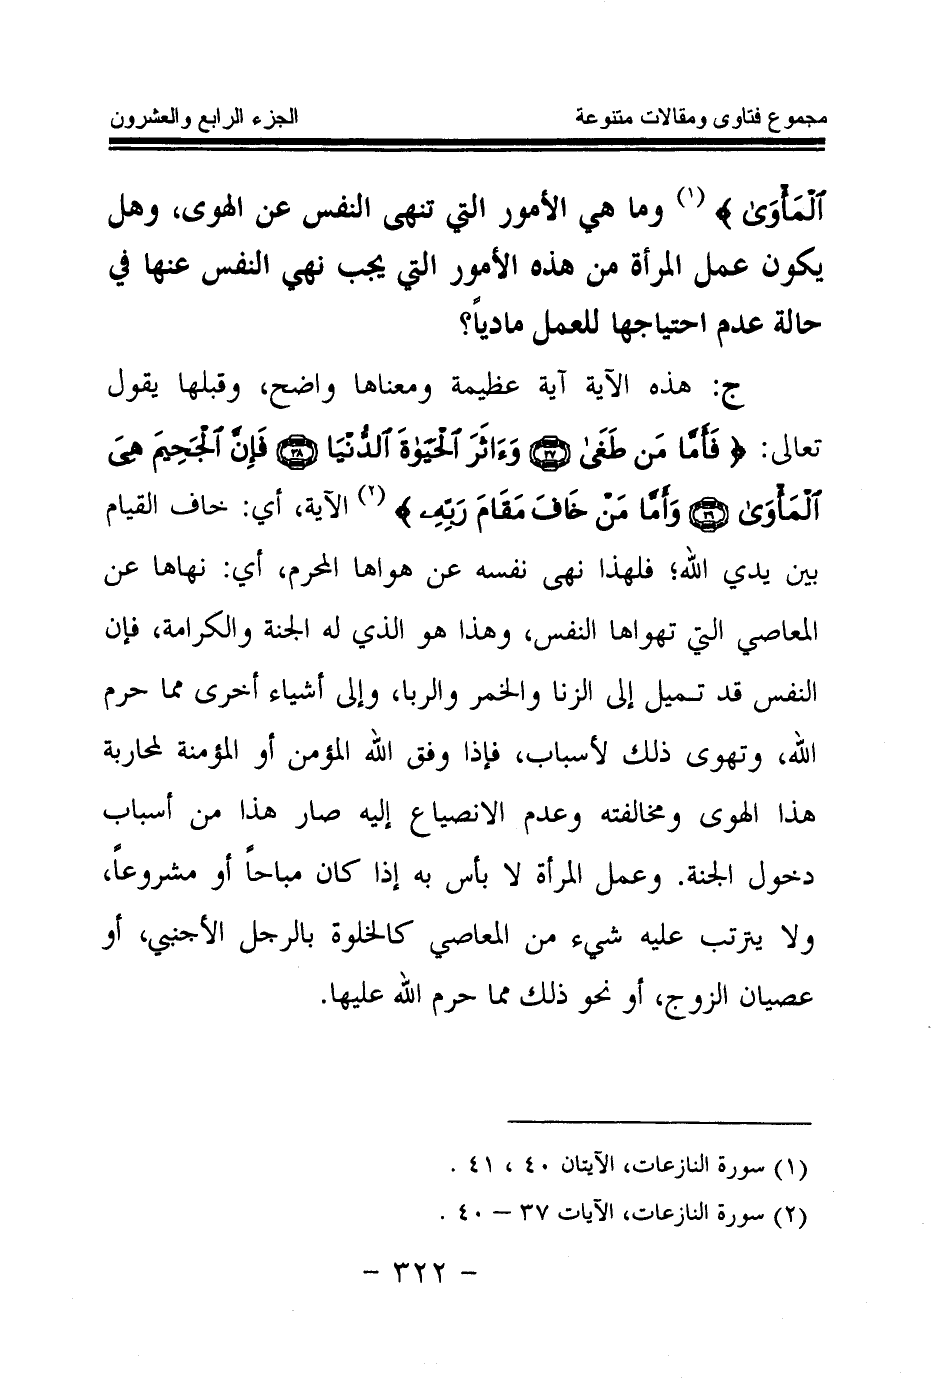 مجموع فتاوى ومقالات متنوعة الجزء الرابع والعشرون
ٱلْمَأْوَىٰ ﴾ (١) وما هي الأمور التي تنهى النفس عن الهوى، وهل
يكون عمل المرأة من هذه الأمور التي يجب نهي النفس عنها في
حالة عدم احتياجها للعمل مادياً؟
ج: هذه الآية آية عظيمة ومعناها واضح، وقبلها يقول
تعالى: ﴿ فَأَمَّا مَن طَغَىٰ ٣٧ وَءَاثَرَ ٱلْحَيَوٰةَ ٱلدُّنْيَا ٣٨ فَإِنَّ ٱلْجَحِيمَ هِىَ
ٱلْمَأْوَىٰ ٣٩ وَأَمَّا مَنْ خَافَ مَقَامَ رَبِّهِۦ ﴾ (٢) الآية، أي: خاف القيام
بين يدي الله؛ فلهذا نهى نفسه عن هواها المحرم، أي: نهاها عن
المعاصي التي تهواها النفس، وهذا هو الذي له الجنة والكرامة، فإن
النفس قد تميل إلى الزنا والخمر والربا، وإلى أشياء أخرى مما حرم
الله، وتهوى ذلك لأسباب، فإذا وفق الله المؤمن أو المؤمنة لمحاربة
هذا الهوى ومخالفته وعدم الانصياع إليه صار هذا من أسباب
دخول الجنة. وعمل المرأة لا بأس به إذا كان مباحاً أو مشروعاً،
ولا يترتب عليه شيء من المعاصي كالخلوة بالرجل الأجنبي، أو
عصيان الزوج، أو نحو ذلك مما حرم الله عليها.
(١) سورة النازعات، الآيتان ٤٠ ، ٤١ .
(٢) سورة النازعات، الآيات ٣٧ – ٤٠ .
- ٣٢٢ -